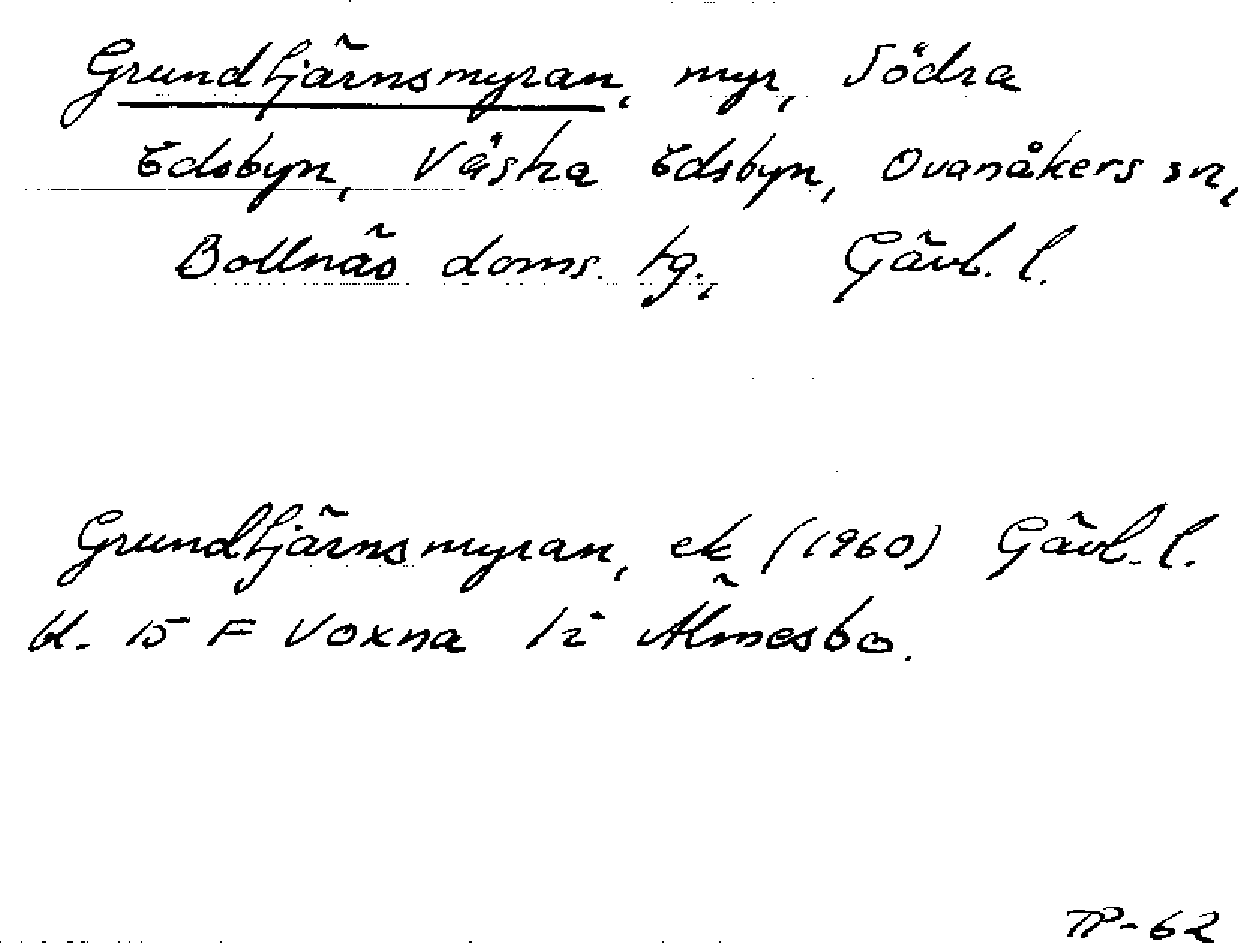 Grundtjärnsmyran, myr, Södra
Edsbyn, Västra Edsbyn, Ovanåkers sn,
Bollnäs doms. tg., Gävl. l.
Grundtjärnsmyran, ek (1960) Gävl. l.
bl. 15 F Voxna 1i Älmesbo.
TP-62